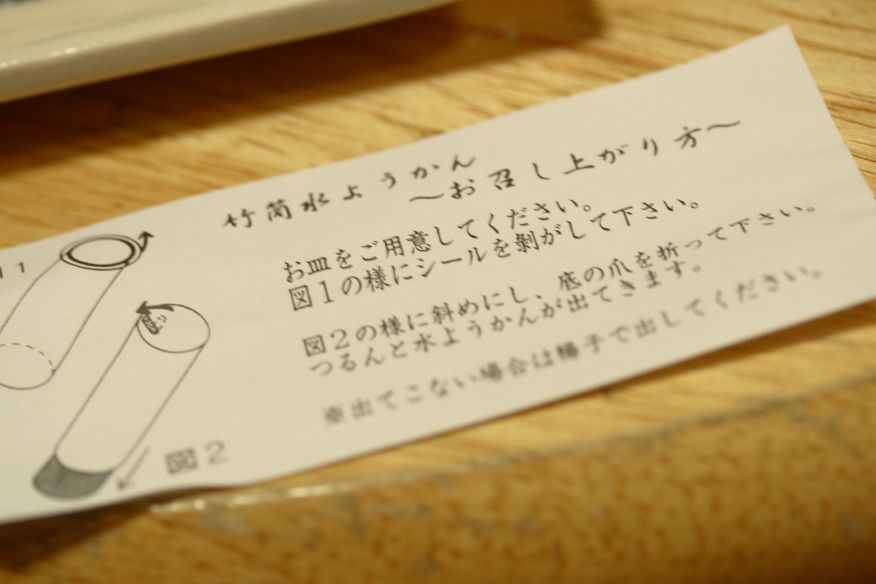 竹筒水ようかん
〜お召し上がり方〜
お皿をご用意してください。
図1の様にシールを剥がして下さい。
図2の様に斜めにし、底の爪を折って下さい。
つるんと水ようかんが出てきます。
※出てこない場合は楊子で出してください。
1
図2